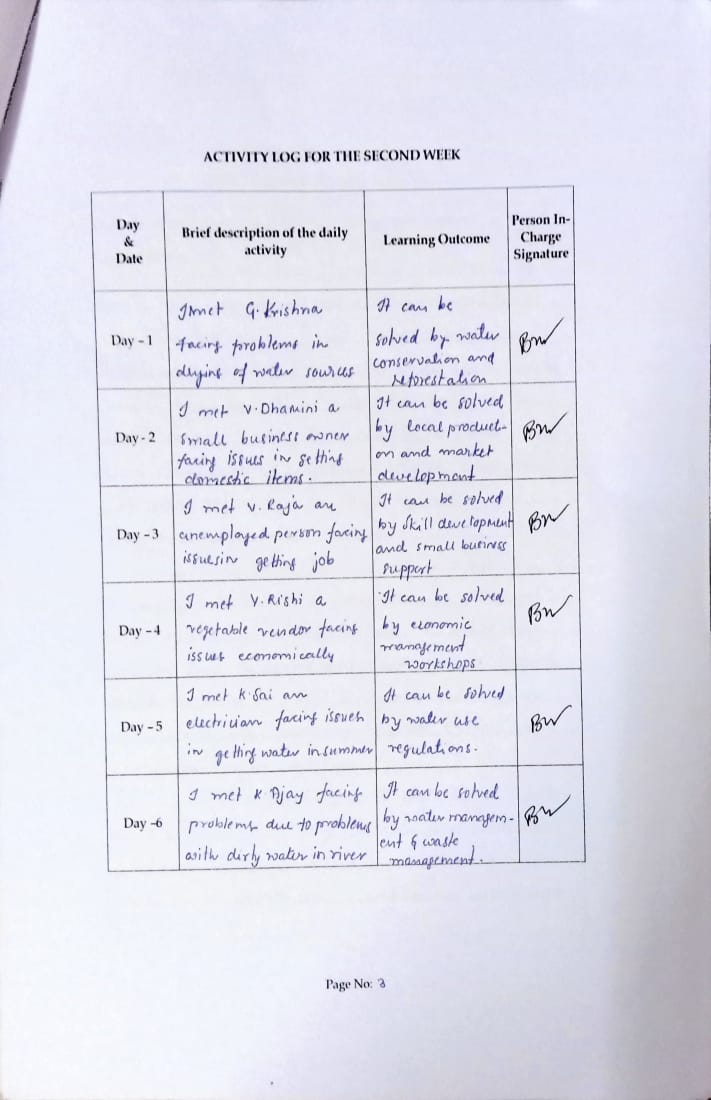 ACTIVITY LOG FOR THE SECOND WEEK
Day
&
Date
Brief description of the daily
activity
Learning Outcome
Person In-
Charge
Signature
Day - 1
I met G. Krishna
facing problems in
drying of water sources
It can be
solved by water
conservation and
reforestation
BW
Day - 2
I met V. Dhamini a
small business owner
facing issues in getting
domestic items.
It can be solved
by local producti-
on and market
development
BW
Day - 3
I met V. Raja an
unemployed person facing
issues in getting job
It can be solved
by skill development
and small business
support
BW
Day - 4
I met Y. Rishi a
vegetable vendor facing
issues economically
It can be solved
by economic
management
workshops
BW
Day - 5
I met K. Sai an
electrician facing issues
in getting water in summer
It can be solved
by water use
regulations.
BW
Day -6
I met K Ajay facing
problems due to problems
with dirty water in river
It can be solved
by water managem-
ent & waste
management.
BW
Page No: 3